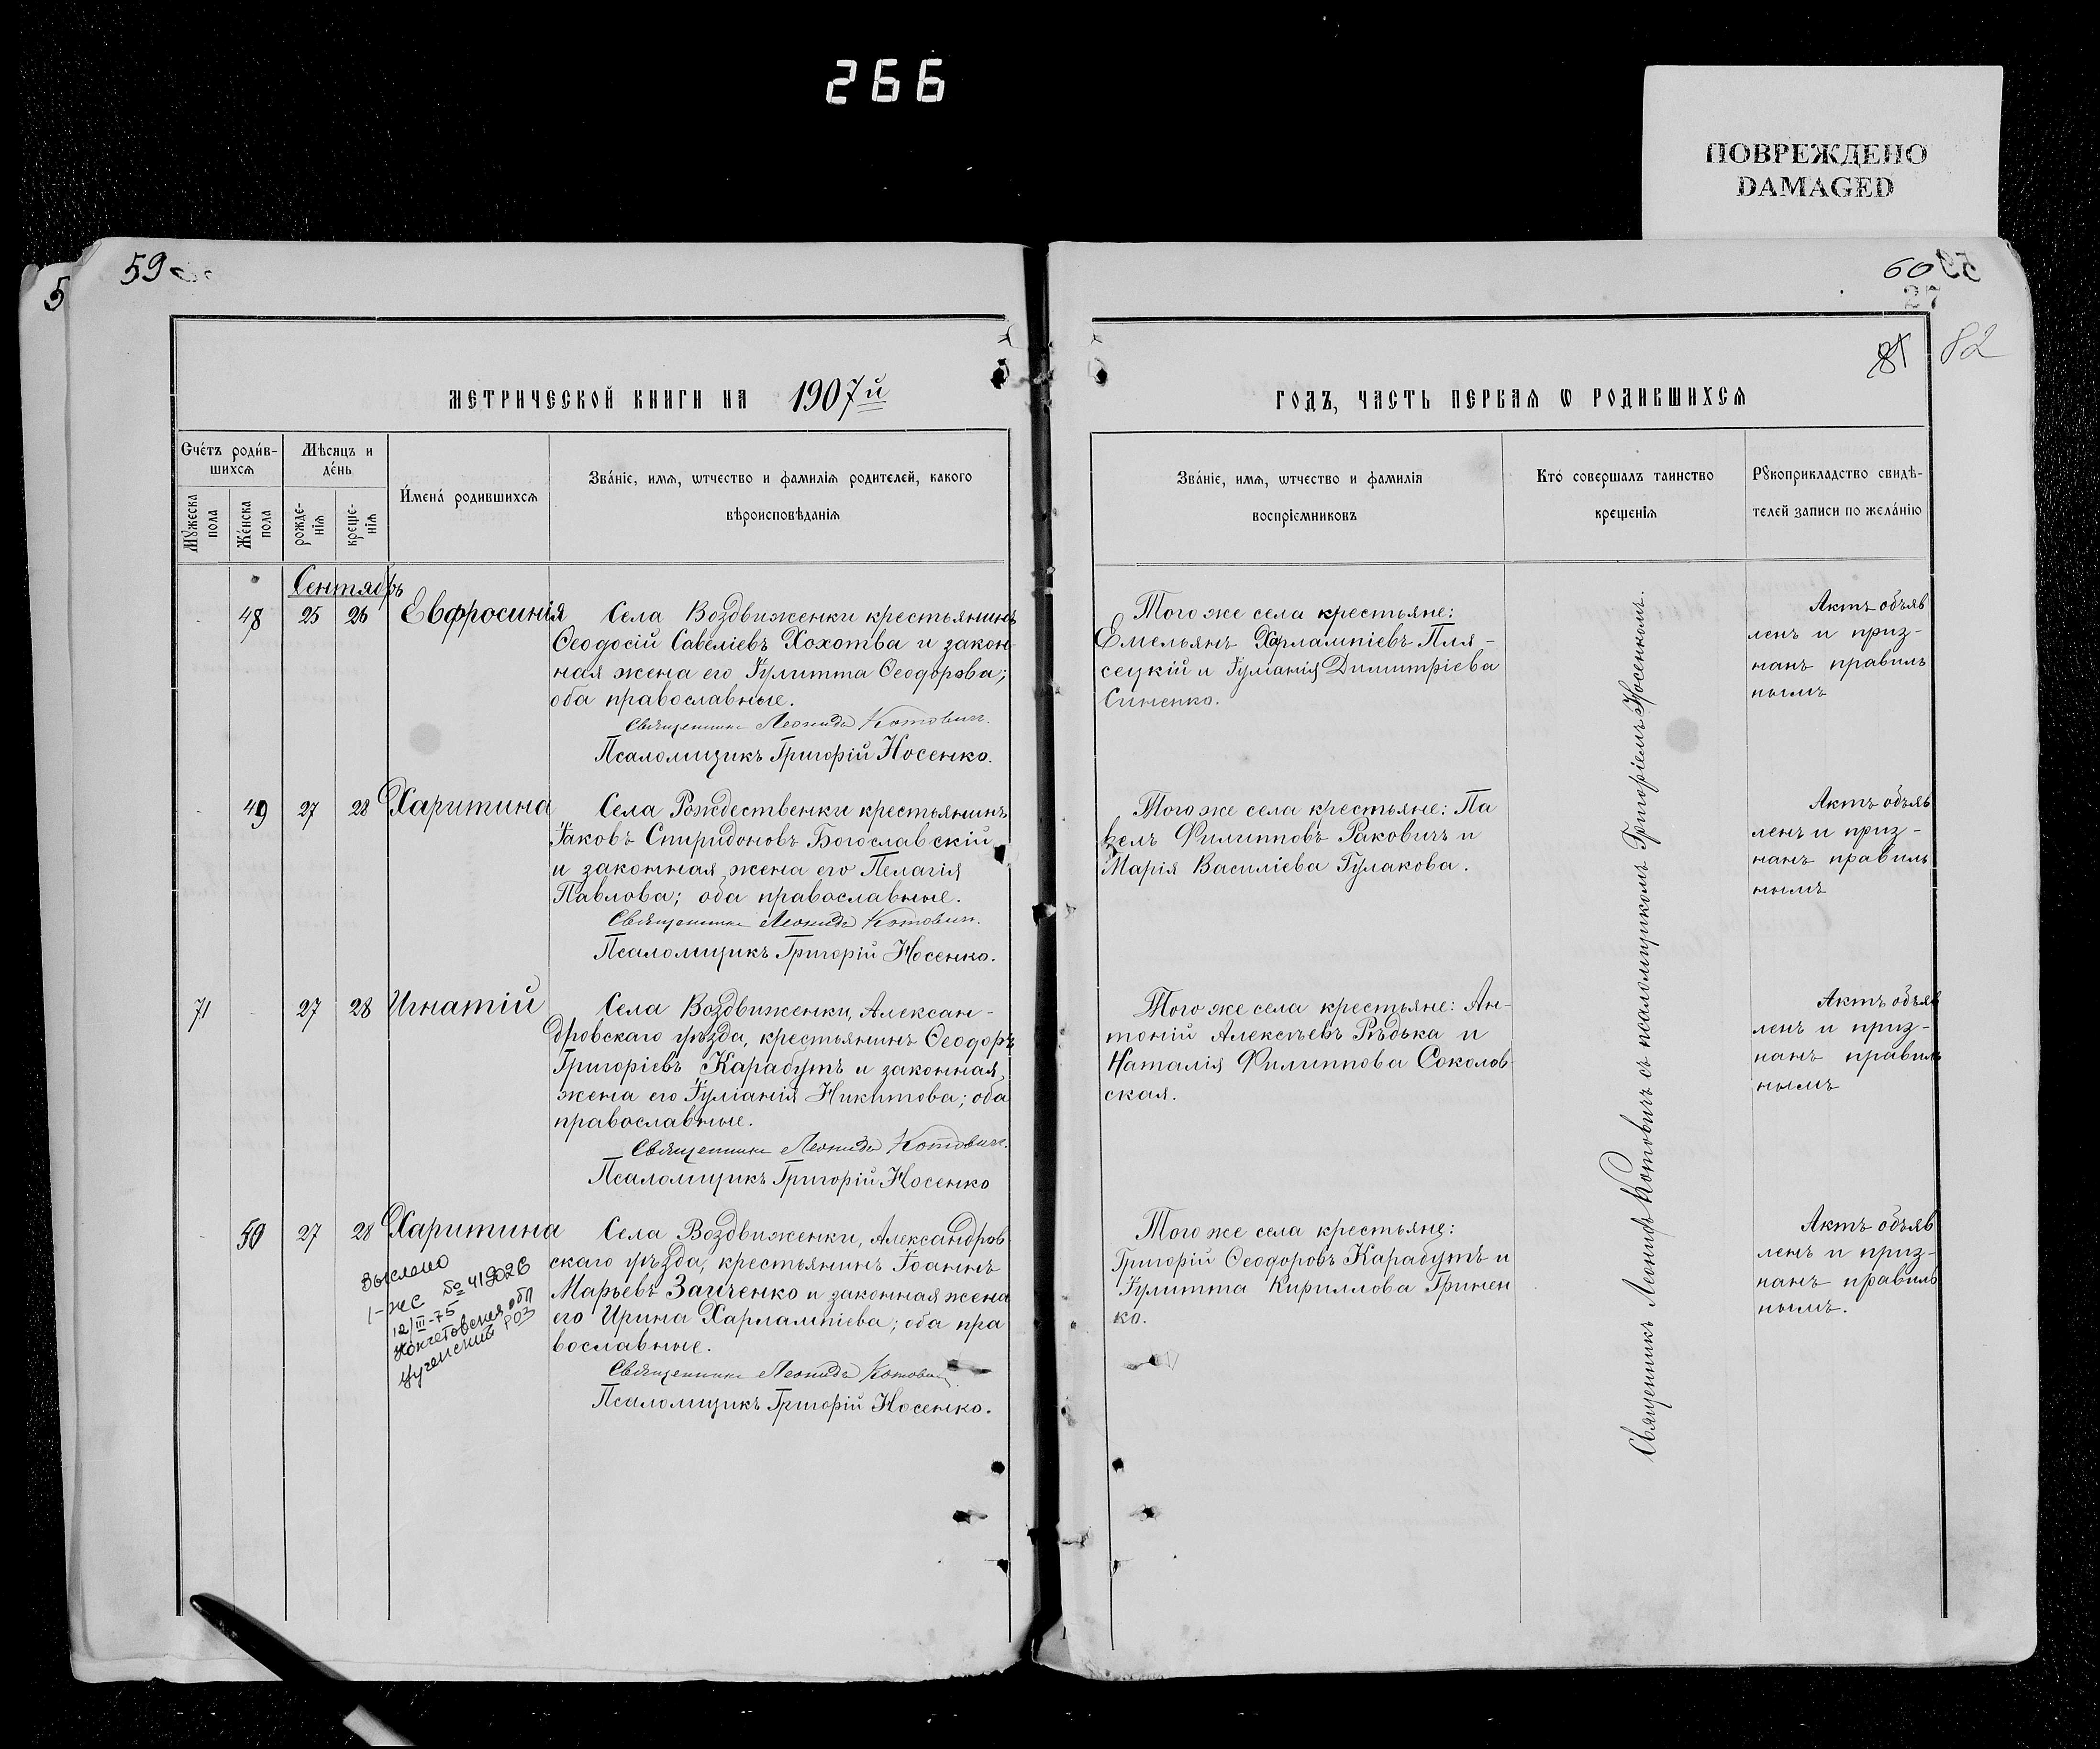 266
ПОВРЕЖДЕНО
DAMAGED
5
59
60
27
81
82
МЕТРИЧЕСКОЙ КНИГИ НА 1907й
ГОДЪ, ЧАСТЬ ПЕРВАЯ Ѡ РОДИВШИХСЯ
Счетъ родив-
шихсѧ
Мѣсяцъ и
день
Мужеска
пола
Женска
пола
рожде-
нїѧ
креще-
нїѧ
Имена родившихсѧ
Званїе, имѧ, ѡтчество и фамилїѧ родителей, какого
вѣроисповѣданїѧ
Званїе, имѧ, ѡтчество и фамилїѧ
воспрїемниковъ
Кто совершалъ таинство
крещенїѧ
Рꙋкоприкладство свидѣ-
телей записи по желанїю
Сентябрь
48 25 26 Евфросинія
Села Воздвиженки крестьянинъ
Ѳеодосій Савеліевъ Хохотва и закон-
ная жена его Іулитта Ѳеодорова;
оба православные.
Священникъ Леонидъ Котовичъ.
Псаломщикъ Григорій Носенко.
Того же села крестьяне:
Емельянъ Харлампіевъ Пля-
сецкій и Іуліанія Димитріева
Синенко.
Актъ объяв
ленъ и приз-
нанъ правиль
нымъ
49 27 28 Харитина
Села Рождественки крестьянинъ
Іаковъ Спиридоновъ Богославскій
и законная жена его Пелагія
Павлова; оба православные.
Священникъ Леонидъ Котовичъ.
Псаломщикъ Григорій Носенко.
Того же села крестьяне: Па
велъ Филипповъ Раковичъ и
Марія Василіева Гулакова.
Актъ объяв
ленъ и приз-
нанъ правиль
нымъ
71 27 28 Игнатій
Села Воздвиженки, Алексан-
дровскаго уѣзда, крестьянинъ Ѳеодоръ
Григоріевъ Карабутъ и законная
жена его Іуліанія Никитова; оба
православные.
Священникъ Леонидъ Котовичъ.
Псаломщикъ Григорій Носенко
Того же села крестьяне: Ан-
тоній Алексѣевъ Рѣдька и
Наталія Филиппова Соколов-
ская.
Актъ объяв
ленъ и приз-
нанъ правиль
нымъ
50 27 28 Харитина
Выслано
I-ЖС № 419026
12/III-75
Кокчетовская обл
РОЗ
Села Воздвиженки, Александров
скаго уѣзда, крестьянинъ Іоаннъ
Марьевъ Заиченко и законная жена
его Ирина Харлампіева; оба пра
вославные.
Священникъ Леонидъ Котовичъ
Псаломщикъ Григорій Носенко.
Того же села крестьяне:
Григорій Ѳеодоровъ Карабутъ и
Іулитта Кириллова Гринен
ко.
Актъ объяв
ленъ и приз-
нанъ правиль
нымъ.
Священникъ Леонидъ Котовичъ съ псаломщикомъ Григоріемъ Носенкомъ.